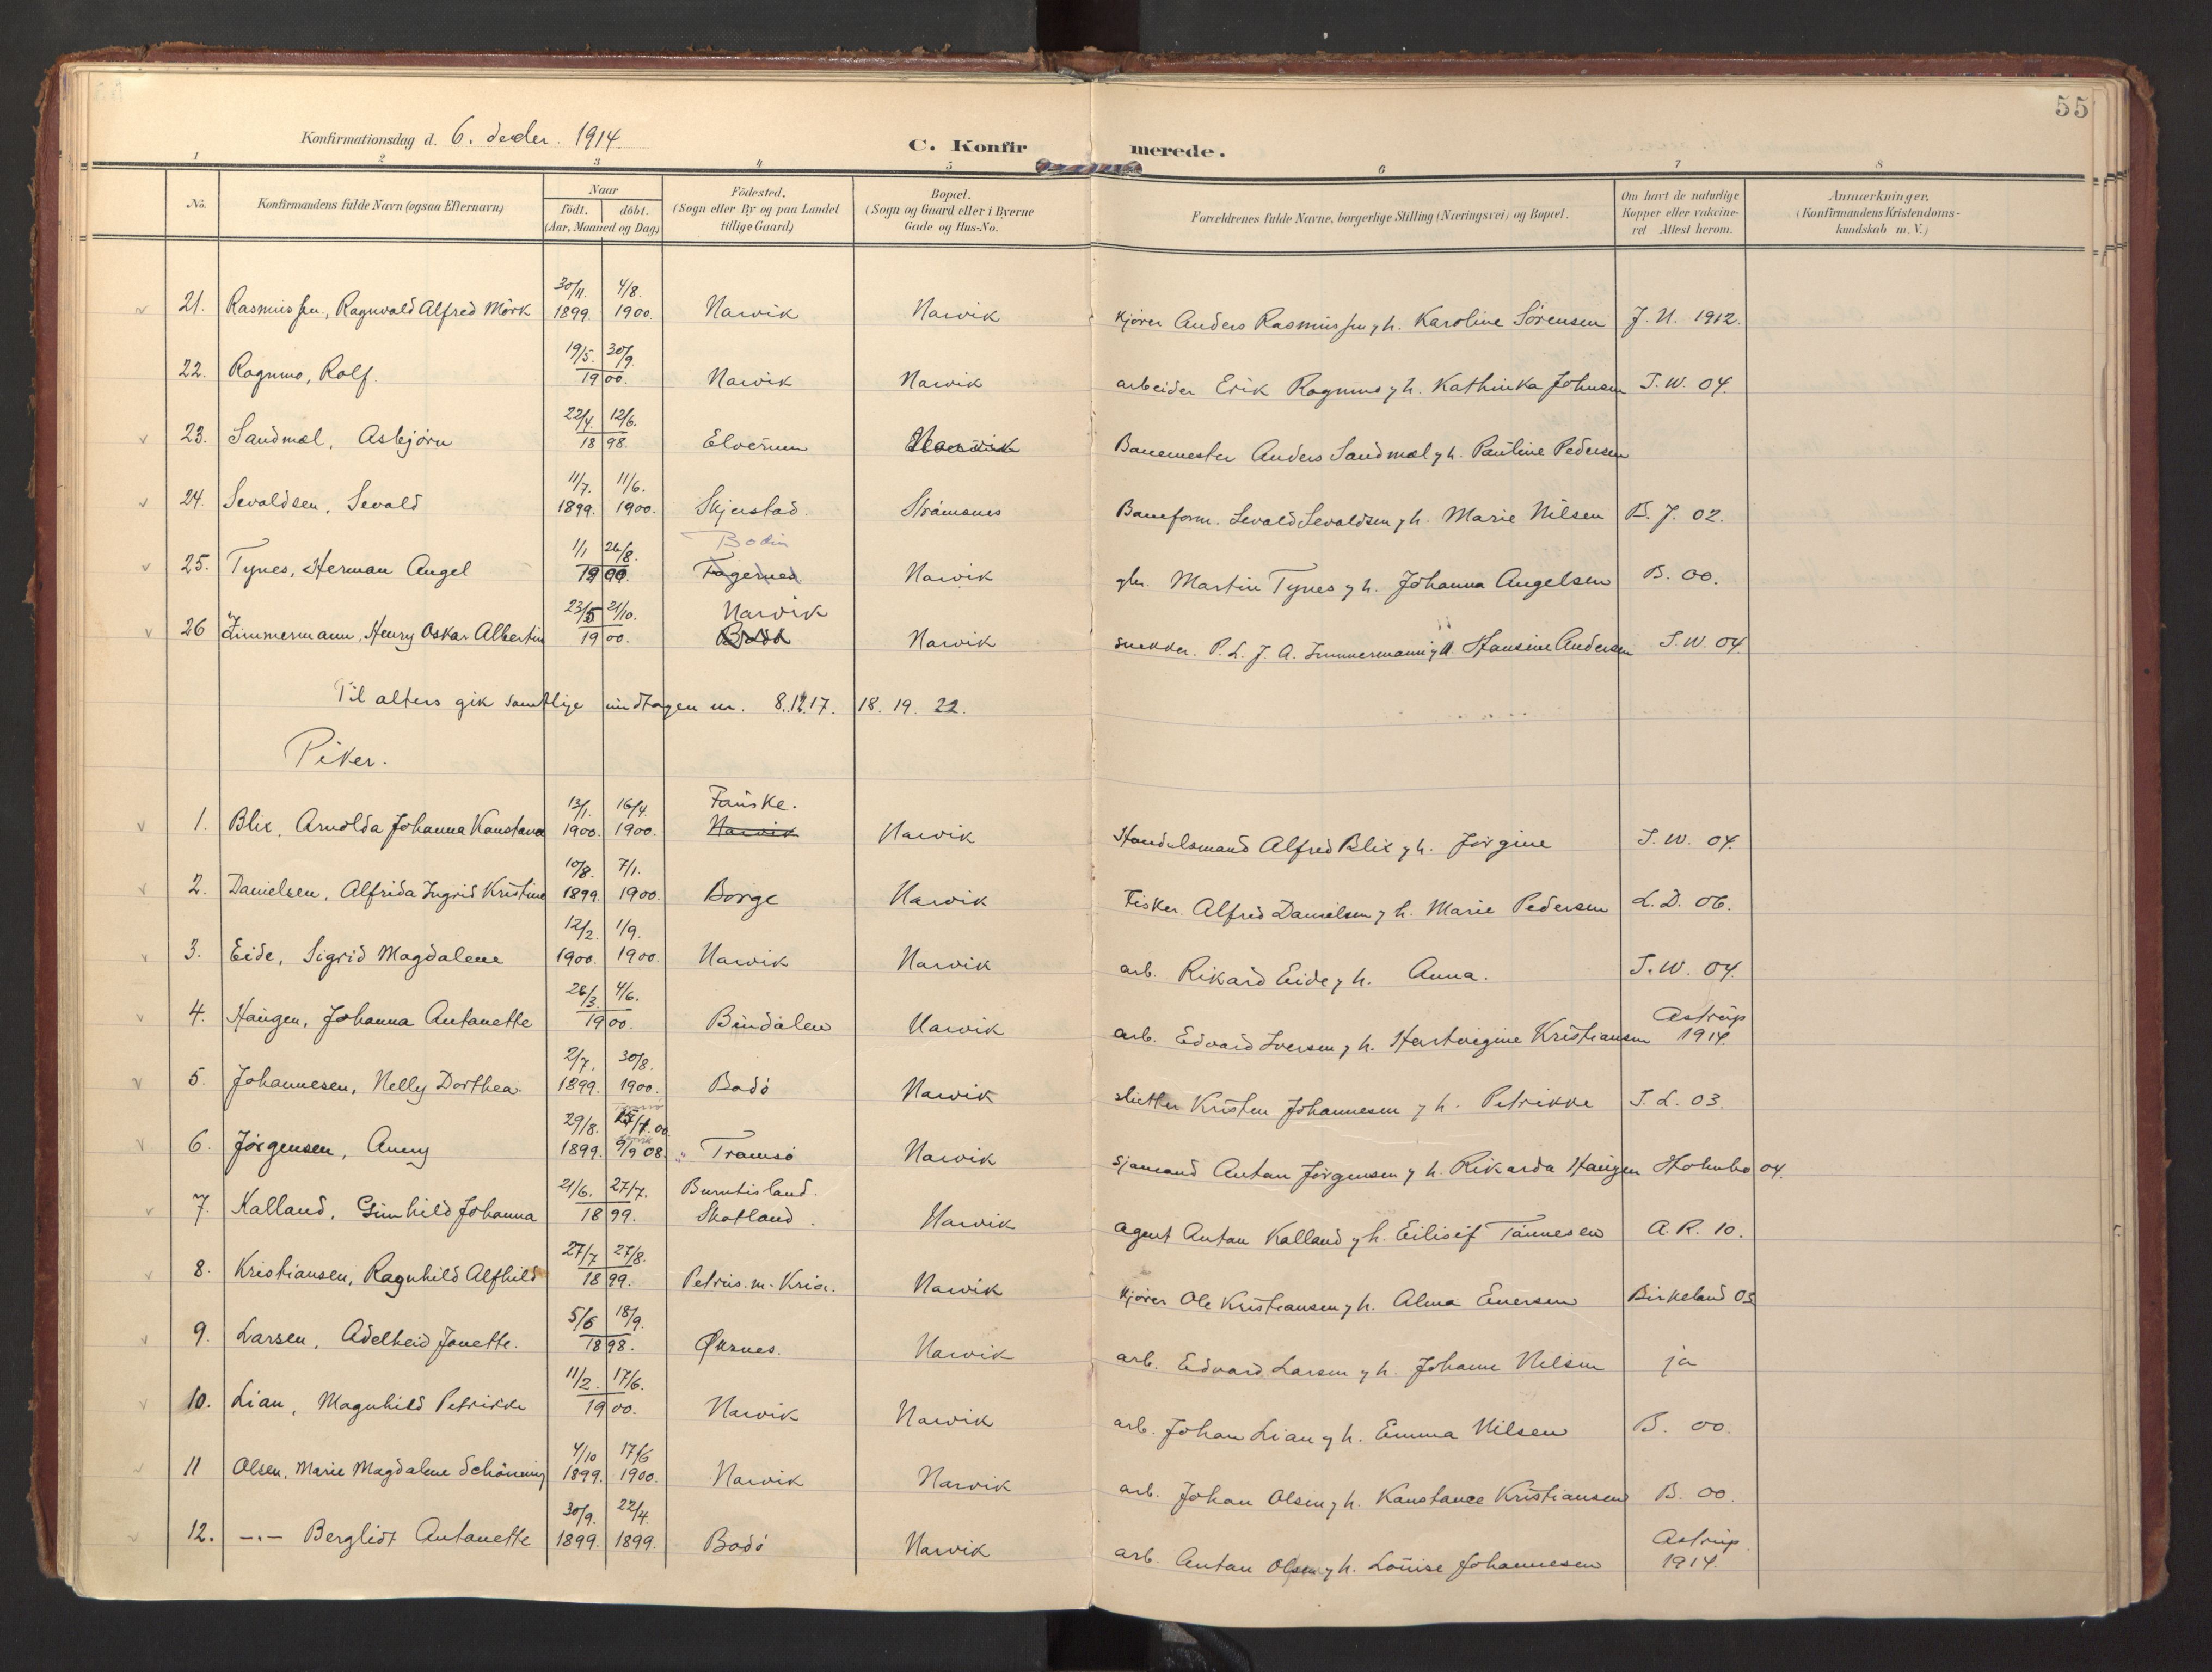 55
Konfirmationsdag d. 6. decbr. 1914.
C. Konfirmerede.
1 2 3 4 5 6 7 8
No. Konfirmandens fulde Navn (ogsaa Efternavn) Naar født. døbt. (Aar, Maaned og Dag) Fødested. (Sogn eller By og paa Landet tillige Gaard) Bopæl. (Sogn og Gaard eller i Byerne Gade og Hus-No. Forældrenes fulde Navne, borgerlige Stilling (Næringsvei) og Bopæl. Om havt de naturlige Kopper eller vakcineret Attest herom. Anmærkninger. (Konfirmandens Kristendomskundskab m. V.)
21. Rasmussen, Ragnvald Alfred Mörk 30/11. 1899. 4/8. 1900. Narvik Narvik Kjører Anders Rasmussen & h. Karoline Sörensen J. N. 1912.
22. Ragnmo, Rolf. 19/5. 30/9. 1900. Narvik Narvik arbeider Erik Ragnmo & h. Kathinka Johnsen I. W. 04.
23. Sandmæl, Asbjörn 22/4. 12/6. 1898. Elverum Narvik Banemester Anders Sandmæl & h. Pauline Pedersen
24. Sevaldsen, Sevald 11/7. 1899. 11/6. 1900. Skjerstad. Strömsnes Baneform. Sevald Sevaldsen & h. Marie Nilsen B. J. 02.
25. Tynes, Herman Angel 1/1 26/8. 1900. Bodin Fagernes Narvik gbr. Martin Tynes & h. Johanna Angelsen B. 00.
26 Zimmermann, Henry Oskar Albertin 23/5 21/10. 1900. Narvik Bodö Narvik snekker. P. L. J. A. Zimmermann & h. Hansine Andersen I. W. 04.
Til alters gik samtlige undtagen nr. 8. 12. 17. 18. 19. 22.
Piker.
1. Blix, Arnolda Johanna Konstanse 13/1. 1900. 16/4. 1900. Fauske. Narvik Narvik Handelsmand Alfred Blix & h. Jörgine I. W. 04.
2. Danielsen, Alfrida Ingrid Kristine 10/8. 1899. 7/1. 1900. Borge Narvik Fisker. Alfred Danielsen & h. Marie Pedersen L. D. 06.
3. Eide, Sigrid Magdalene 12/2. 1900. 1/9. 1900. Narvik Narvik arb. Rikard Eide & h. Anna. I. W. 04.
4. Haugen, Johanna Antonette 26/3. 4/6. 1900. Bindalen Narvik arb. Edvard Iversen & h. Hertvigine Kristiansen Astrup 1914.
5. Johannesen, Nelly Dorthea. 2/7. 1899. 30/8. 1900. Bodö Narvik Kristen Johannesen & h. Petrikke I. L. 03.
6. Jörgensen, Anny 29/8. 1899. 9/9 08. Tromsö Narvik sjömand Anton Jörgensen & h. Rikarda Haugen Holmbo 04.
7. Kalland, Gunhild Johanna 21/6. 27/7. 1899. Burntisland. Skotland. Narvik agent Anton Kalland & h. Eilisif Tönnesen A. R. 10.
8. Kristiansen, Ragnhild Alfhild 27/7 27/8. 1899. Petrus. m. Kria. Narvik Kjører Ole Kristiansen & h. Alma Enersen Birkeland 03
9. Larsen, Adelheid Jonette. 5/6 18/9. 1898. Øksnes. Narvik arb. Edvard Larsen & h. Johanne Nilsen ja
10. Lian, Magnhild Petrikke 11/2. 17/6. 1900. Narvik Narvik arb. Johan Lian & h. Emma Nilsen B. 00.
11 Olsen, Marie Magdalene Schöning 4/10 1899. 17/6 1900. Narvik Narvik arb. Johan Olsen & h. Konstance Kristiansen B. 00.
12. -"- Bergliot Antonette 30/9. 1899. 22/4. 1899. Bodö Narvik arb. Anton Olsen & h. Louise Johannesen Astrup. 1914.